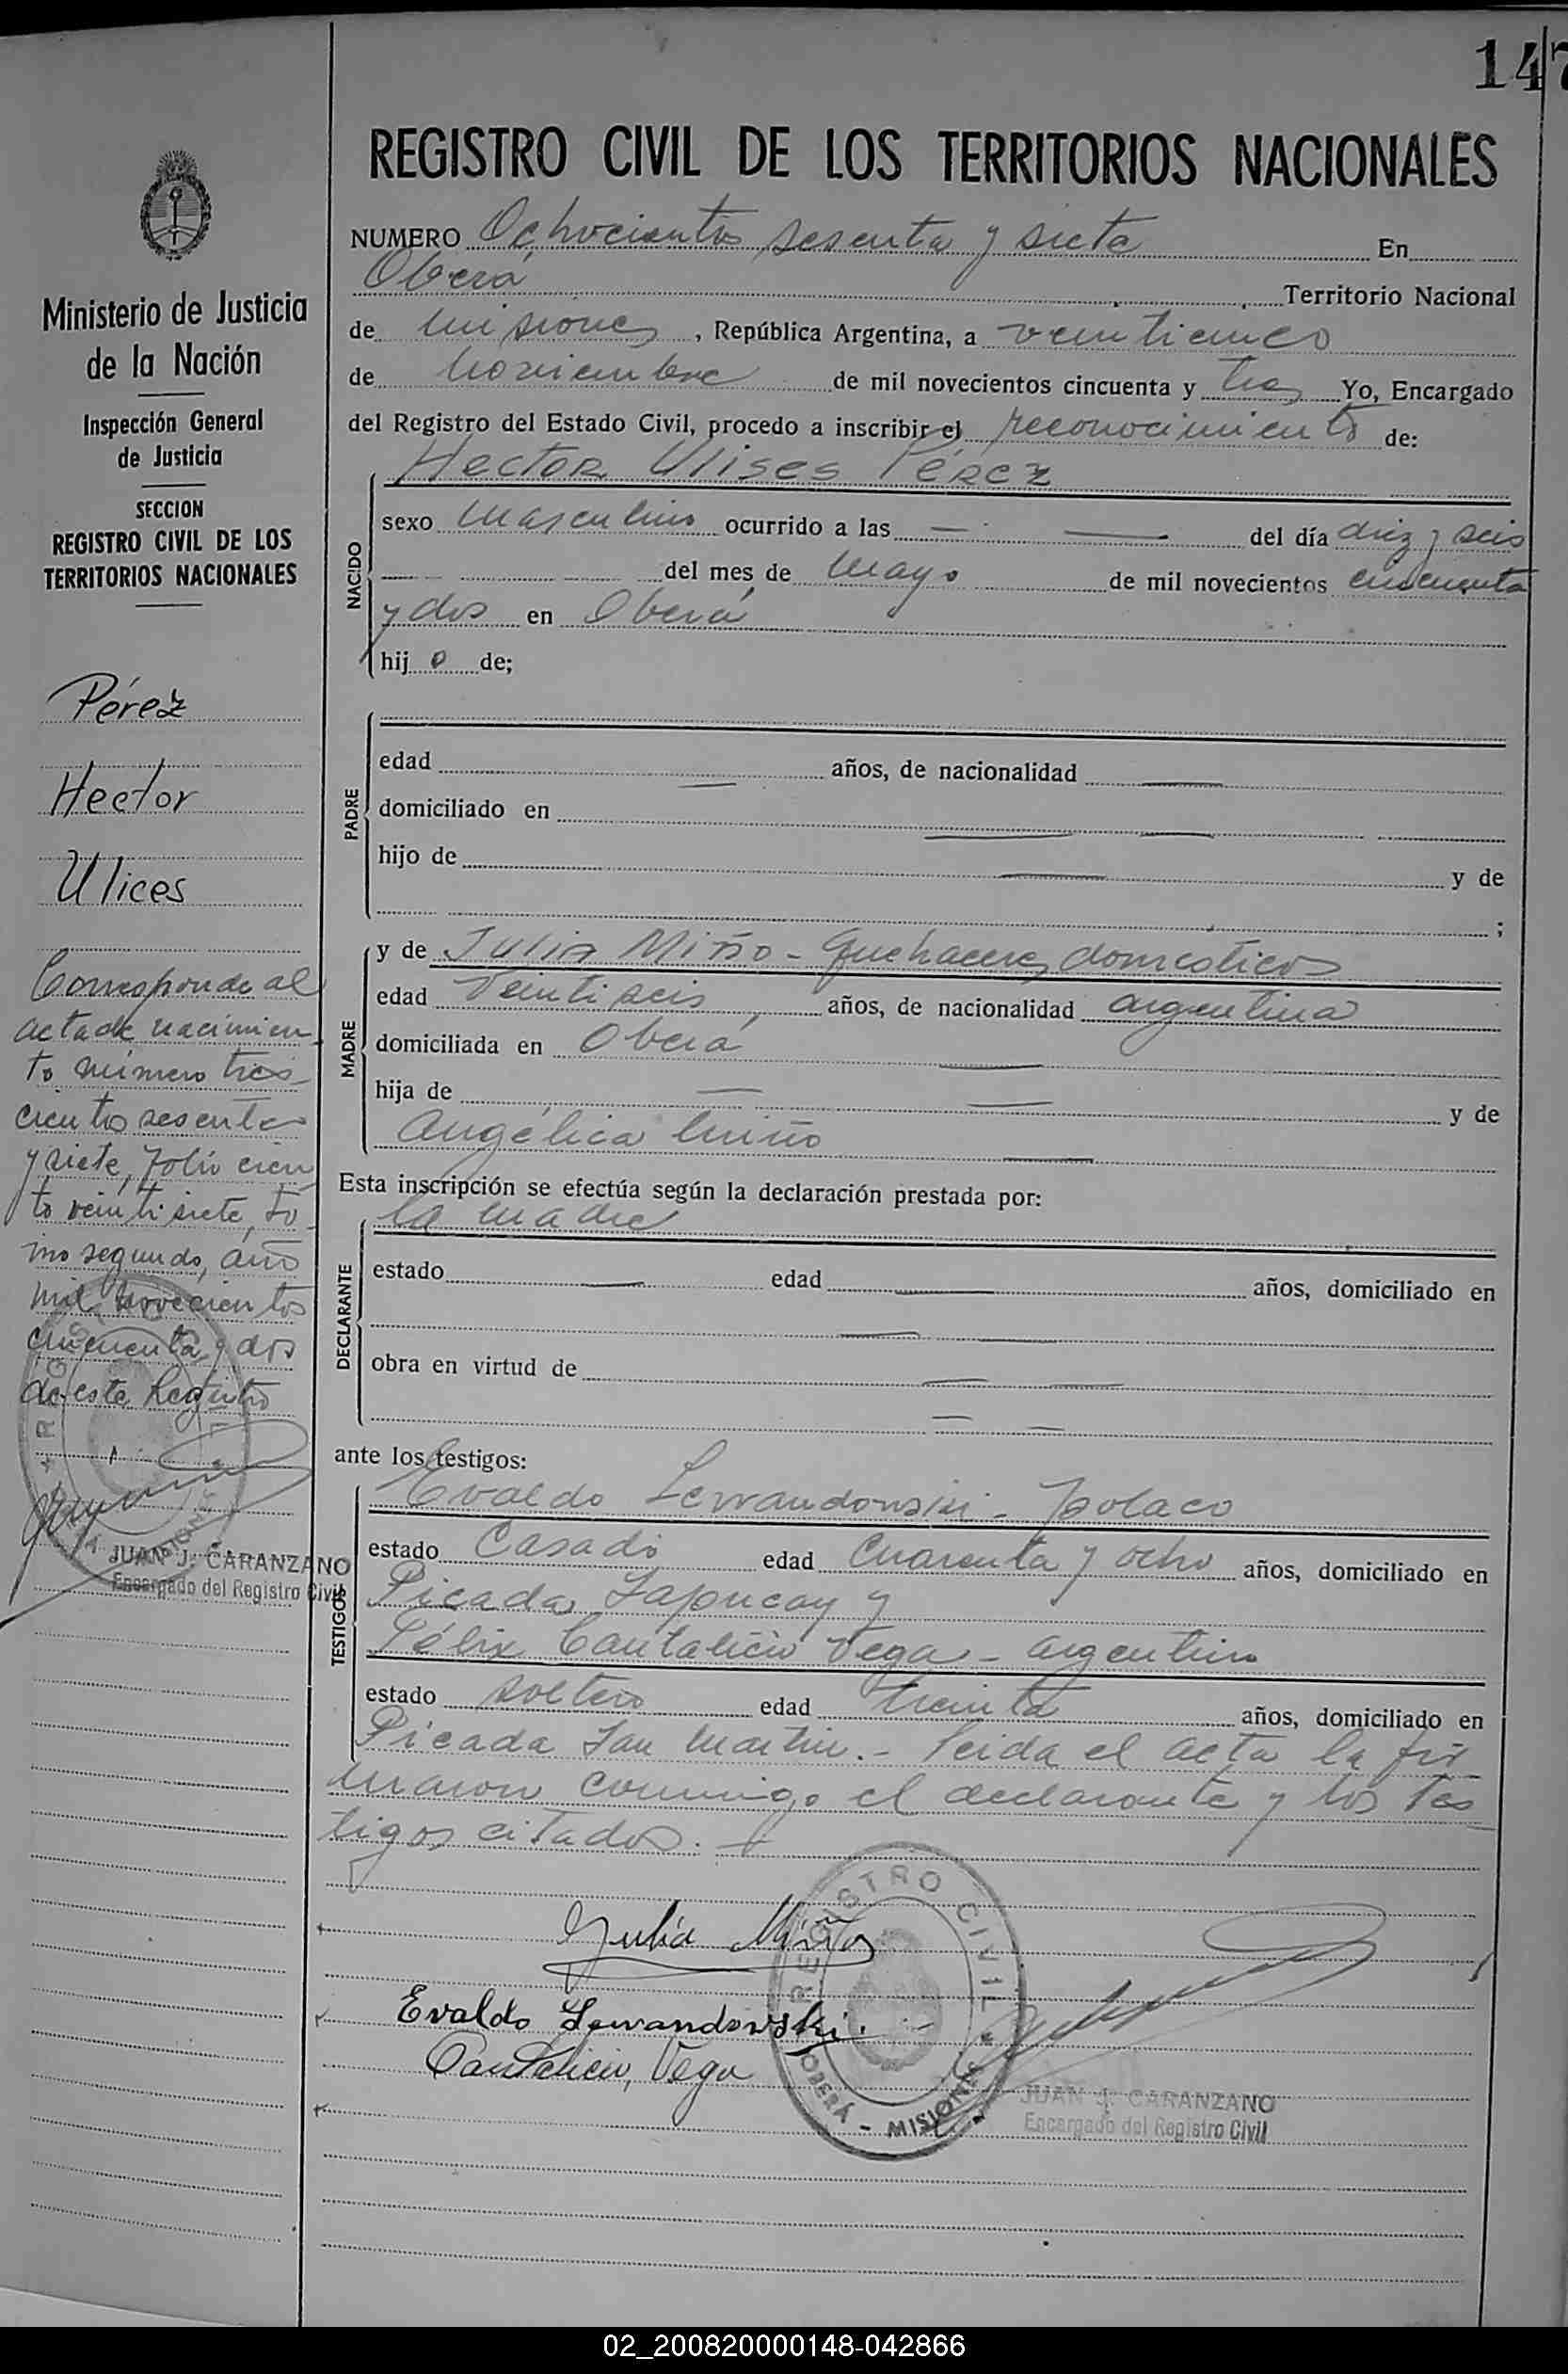 147
REGISTRO CIVIL DE LOS TERRITORIOS NACIONALES
NUMERO Ochocientos sesenta y siete En
Oberá Territorio Nacional
de Misiones, República Argentina, a veinticinco
de Noviembre de mil novecientos cincuenta y tres Yo, Encargado
del Registro del Estado Civil, procedo a inscribir el reconocimiento de:
Hector Ulises Pérez
NACIDO
sexo Masculino ocurrido a las — — del día diez y seis
del mes de Mayo de mil novecientos cincuenta
y dos en Oberá
hijo de;
PADRE
edad — años, de nacionalidad —
domiciliado en — —
hijo de — y de
;
MADRE
y de Julia Miño - Quehaceres domésticos
edad Veintiseis, años, de nacionalidad argentina
domiciliada en Oberá —
hija de — — y de
Angélica Miño —
Esta inscripción se efectúa según la declaración prestada por:
la madre
DECLARANTE
estado — edad — años, domiciliado en
— —
obra en virtud de — —
— —
ante los testigos:
TESTIGOS
Evaldo Lewandowski - polaco
estado Casado edad Cuarenta y ocho años, domiciliado en
Picada Sapucay y
Félix Cantalicio Vega - argentino
estado soltero edad treinta años, domiciliado en
Picada San Martin.- Leida el acta la fir-
maron conmigo el declarante y los tes-
tigos citados.—
Julia Miño
Evaldo Lewandowski
Cantalicio, Vega
REGISTRO CIVIL
OBERÁ - MISIONES
JUAN J. CARANZANO
Encargado del Registro Civil
Ministerio de Justicia
de la Nación
Inspección General
de Justicia
SECCION
REGISTRO CIVIL DE LOS
TERRITORIOS NACIONALES
Pérez
Hector
Ulices
Corresponde al
acta de nacimien
to número tres
cientos sesenta
y siete, folio cien
to veintisiete, to-
mo segundo, año
mil novecientos
cincuenta y dos
de este Registro
JUAN J. CARANZANO
Encargado del Registro Civil
02_200820000148-042866